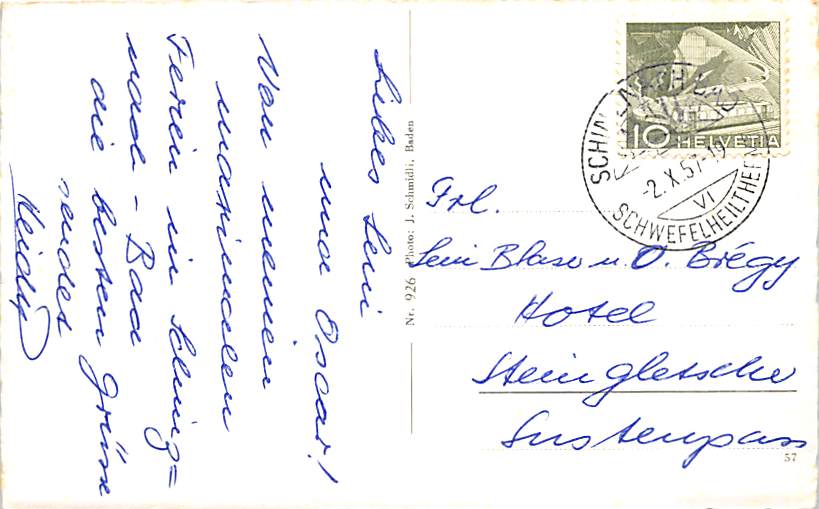 Liebes Leni
und Oscar!
Von meinen
Ferien in Schinz=
nach - Bad
die besten Grüsse
sendet
Heidy
Nr. 926 Photo: J. Schmidli, Baden
10 HELVETIA
SCHINZNACH BAD
-2.X.57-19
VI
SCHWEFELHEILTHERME
Frl.
Leni Blaser u. O. Brégy
Hotel
Steingletscher
Sustenpass
57